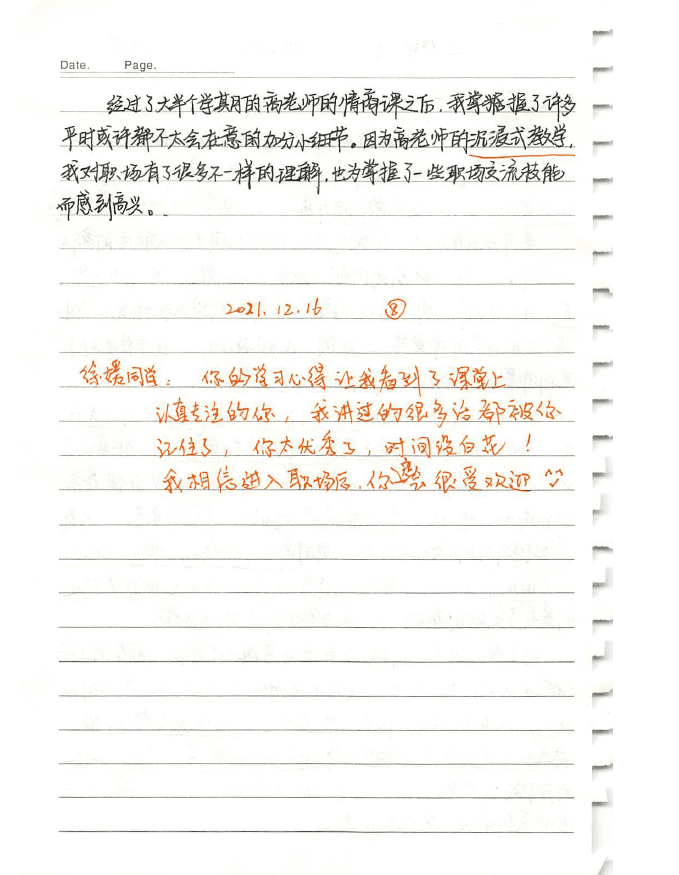 Date. Page.
经过了大半个学期的高老师的情商课之后，我掌握了许多
平时或许都不太会在意的加分小细节。因为高老师的沉浸式教学，
我对职场有了很多不一样的理解，也为掌握了一些职场交流技能
而感到高兴。
2021.12.16 ⑧
徐媛同学：你的学习心得让我看到了课堂上
认真专注的你，我讲过的很多话都被你
记住了，你太优秀了，时间没白花！
我相信进入职场后，你一定会很受欢迎 ^^